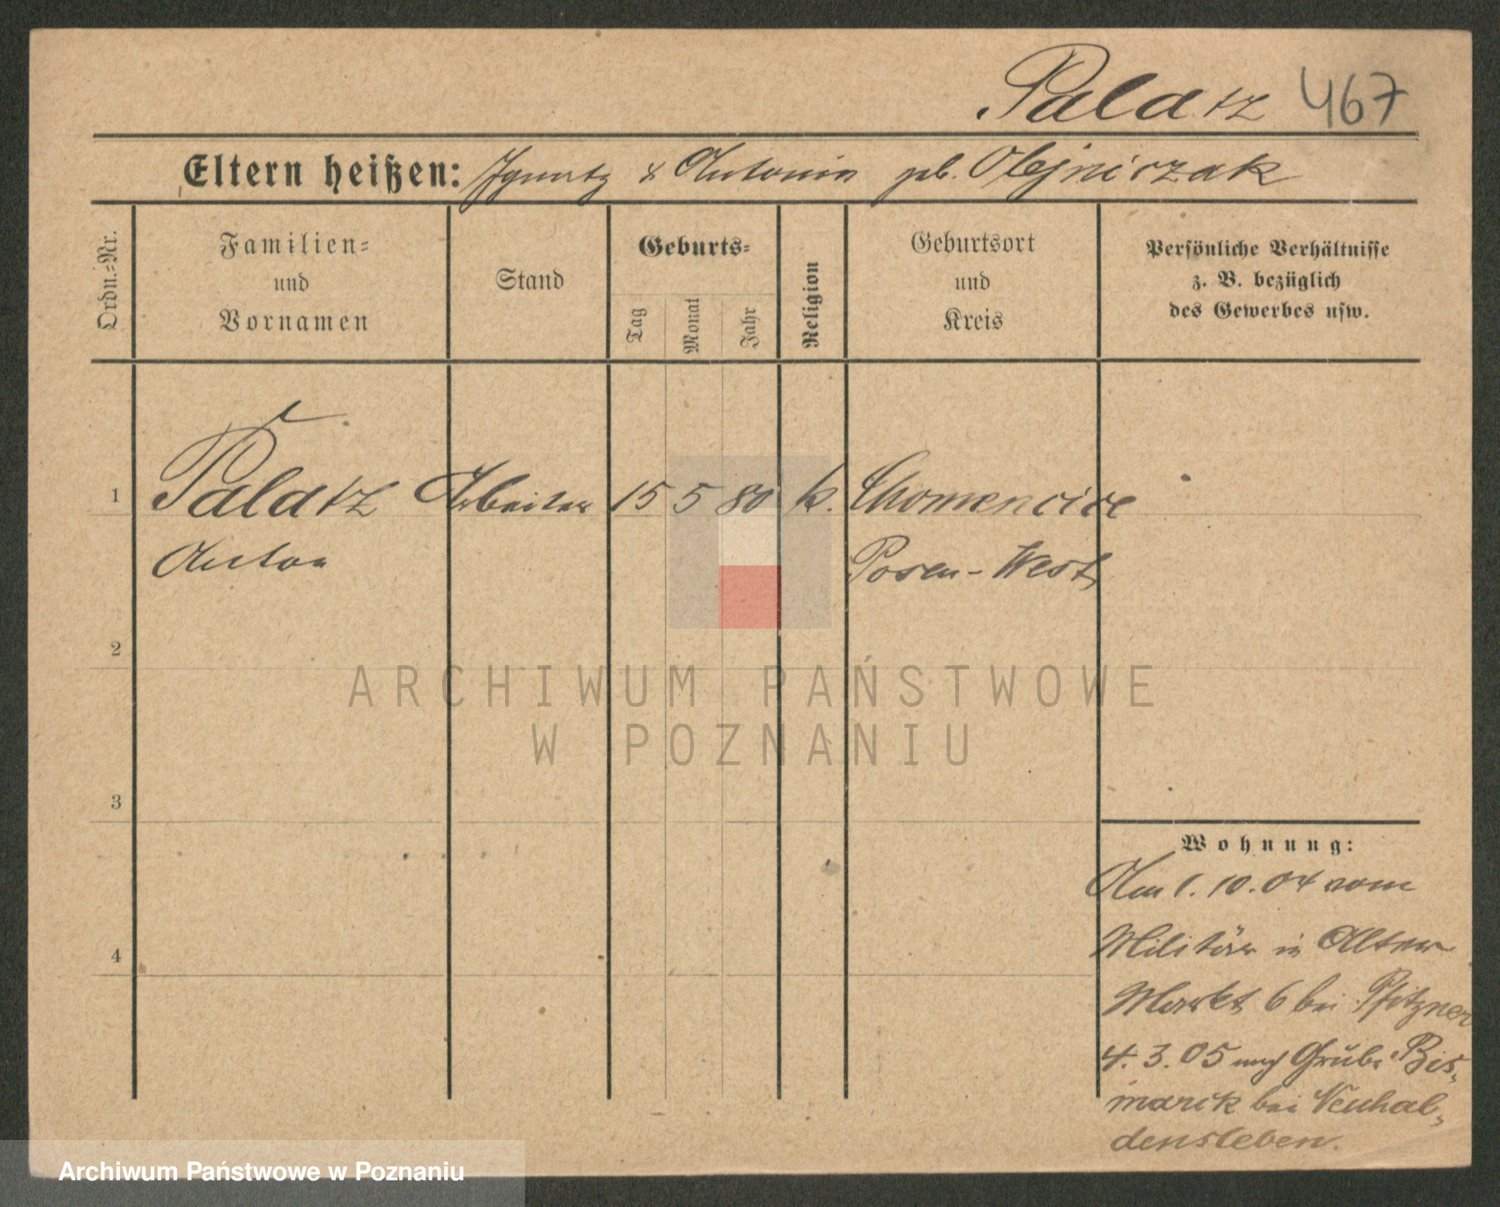 Palatz 467
Eltern heißen: Ignatz & Antonin geb. Olejniczak
Ordn.-Nr.
Familien-
und
Vornamen
Stand
Geburts-
Tag
Monat
Jahr
Religion
Geburtsort
und
Kreis
Persönliche Verhältnisse
z. B. bezüglich
des Gewerbes usw.
1 Palatz Arbeiter 15 5 80 k. Chomencice
Anton Posen-West
2
ARCHIWUM PAŃSTWOWE
W POZNANIU
3
Wohnung:
Am 1. 10. 04 vom
Militär in Alter
4
Markt 6 bei Pfitzner
4. 3. 05 nach Grube Bis-
marck bei Neuhal-
densleben.
Archiwum Państwowe w Poznaniu